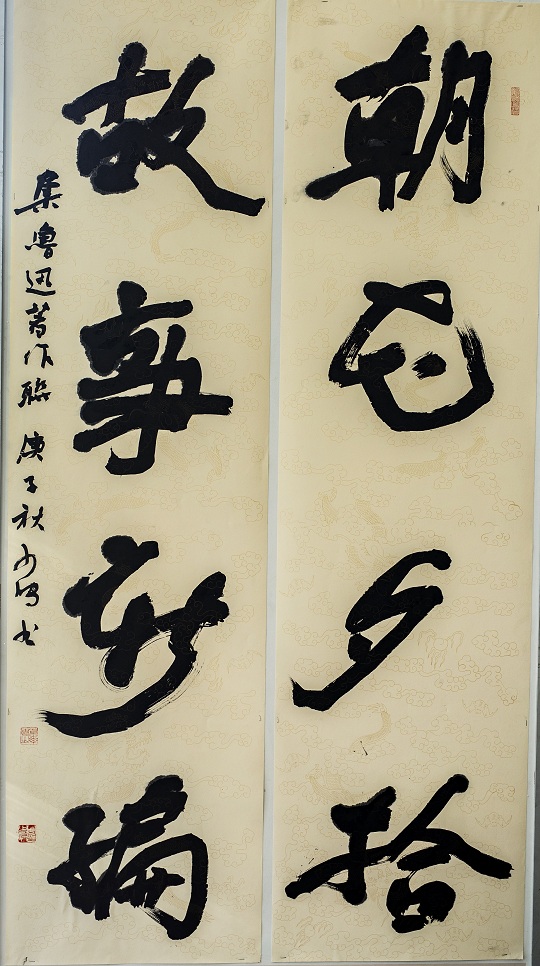 朝花夕拾
故事新编
集鲁迅著作联 庚子秋